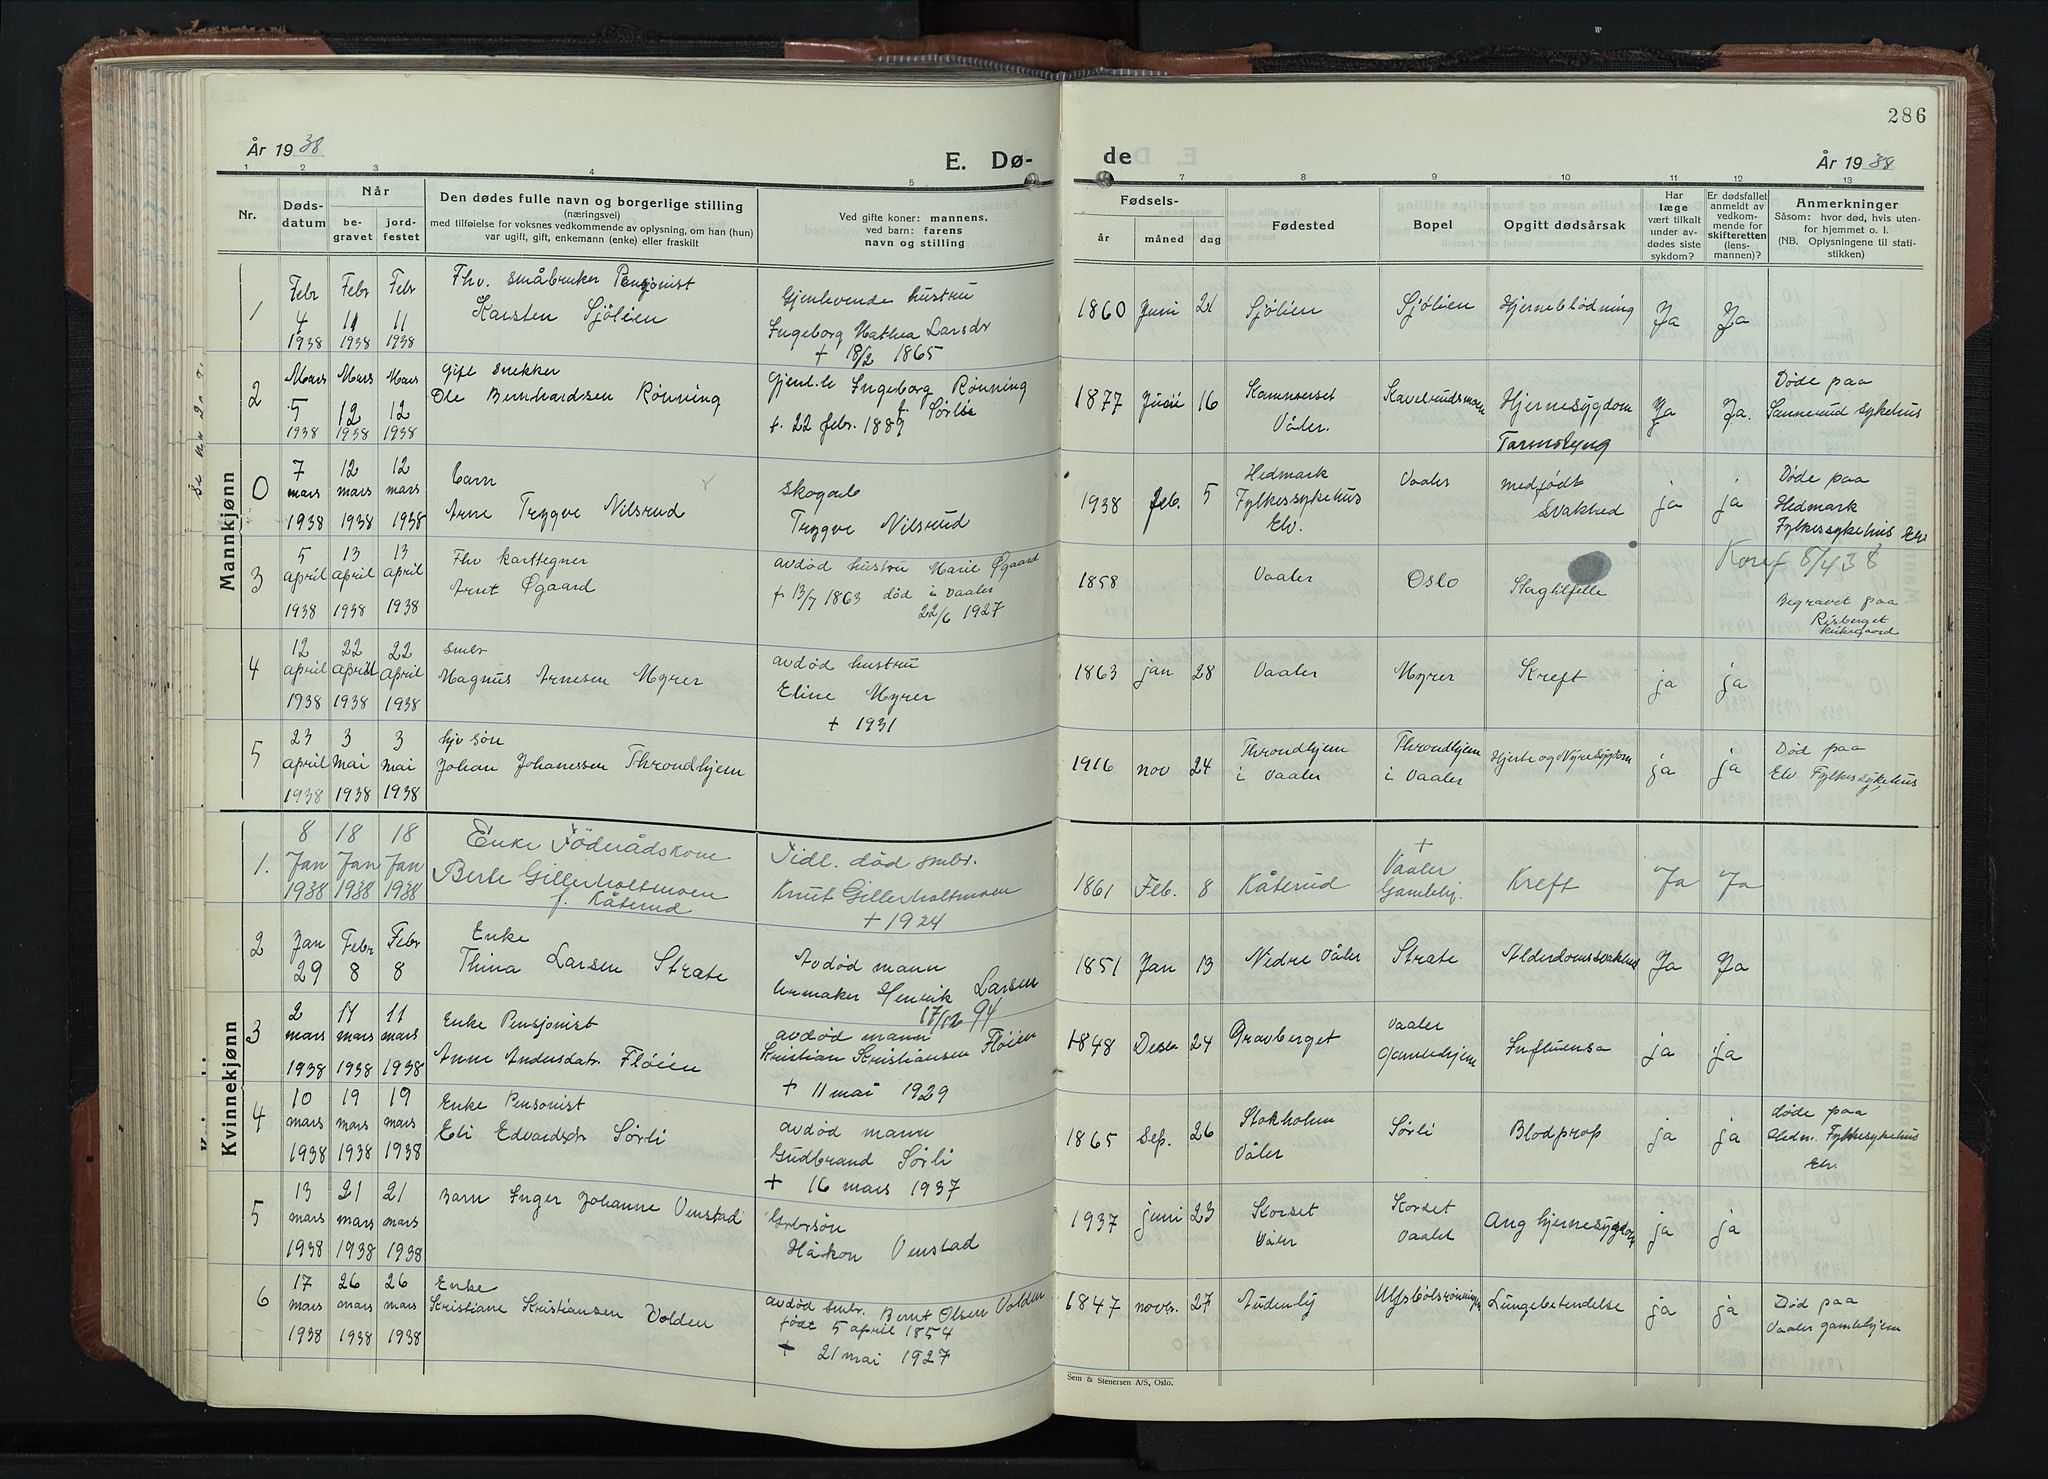 286
År 1938
E. Dø-
de
År 1938
1 2 3 4 5
7 8 9 10 11 12 13
Nr.
Døds-
datum
Når
be-
gravet
jord-
festet
Den dødes fulle navn og borgerlige stilling
(næringsvei)
med tilføielse for voksnes vedkommende av oplysning, om han (hun)
var ugift, gift, enkemann (enke) eller fraskilt
Ved gifte koner: mannens,
ved barn: farens
navn og stilling
Fødsels-
år måned dag
Fødested
Bopel
Opgitt dødsårsak
Har
læge
vært tilkalt
under av-
dødes siste
sykdom?
Er dødsfallet
anmeldt av
vedkom-
mende for
skifteretten
(lens-
mannen)?
Anmerkninger
Såsom: hvor død, hvis uten-
for hjemmet o. l.
(NB. Oplysningene til stati-
stikken)
Mannkjønn
1
Febr 4 1938
Febr 11 1938
Febr 11 1938
Fhv. småbruker Pensjonist
Karsten Sjölien
Gjenlevende hustru
Ingeborg Mathea Larsdr
+ 18/2 1865
1860 Juni 21 Sjölien Sjölien Hjerneblødning Ja Ja
2
Mars 5 1938
Mars 12 1938
Mars 12 1938
Gift snekker
Ole Bernhardsen Rönning
Gjenl. Ingeborg Rønning
f. Sørlie
f. 22 febr. 1889
1877 16
Våler.
Hjernesygdom
Tarmslyng
Ja Ja.
Døde paa
Sannerud sykehus
0
7 mars 1938
12 mars 1938
12 mars 1938
barn
Arne Trygve Nilsrud
skogarb
Trygve Nilsrud
1938 feb. 5
Hedmark
Fylkessykehus
Elv.
Vaaler
medfødt
svakhed
ja ja
Døde paa
Hedmark
Fylkessykehus Elv
3
5 april 1938
13 april 1938
13 april 1938
Fhv karttegner
Arnt Øgaard
avdød hustru Marie Øgaard
f 13/7 1863 død i Vaaler
22/6 1927
1858 Vaaler Oslo Slagtilfelle
8/4 38
Begravet paa
Risberget
Kirkegaard
4
12 april 1938
22 april 1938
22 april 1938
smbr
Magnus Arnesen Myrer
avdød hustru
Eline Myrer
+ 1931
1863 jan 28 Vaaler Myrer Kreft ja ja
5
23 april 1938
3 mai 1938
3 mai 1938
hjv søn
Johan Johanessen Throndhjem
1916 nov 24
Throndhjem
i Vaaler
Throndhjem
i Vaaler
Hjerte og Nyresygdom
ja ja
Død paa
Elv Fylkessykehus
Kvinnekjønn
1.
8 Jan 1938
18 Jan 1938
18 Jan 1938
Enke Föderådskone
Berte Gillerholtmoen
f. Kåterud
Tidl. död smbr.
Knut Gillerholtmoen
+ 1924
1861 Feb. 8 Kåterud
+
Vaaler
Gamlehj.
Kreft Ja Ja
2
Jan 29
Febr 8
Febr 8
Enke
Thina Larsen Strate
Avdød mann
Henrik Larsen
17/12 94
1851 Jan 13 Nedre Våler Strate Alderdomssvakhed Ja Ja
3
2 mars 1938
11 mars 1938
11 mars 1938
Enke Pensjonist
Anne Andersdatr Fløien
avdød mann
Kristian Kristiansen Fløien
+ 11 mai 1929
1848 Desbr 24 Gravberget
Vaaler
Gamlehjem
Influensa ja ja
4
10 mars 1938
19 mars 1938
19 mars 1938
Enke Pensonist
Eli Edvardsdr Sørli
avdød mann
Gudbrand Sørli
+ 16 mars 1937
1865 Sep. 26
Stokholm
Våler
Sørli Blodprop ja ja
døde paa
Hedm. Fylkesykehus
Elv.
5
13 mars 1938
21 mars 1938
21 mars 1938
Barn Inger Johanne Venstad
Håkon Venstad
1937 juni 23
Korset
Våler
Korset
Vaaler
Ang hjernesygdom
ja ja
6
17 mars 1938
26 mars 1938
26 mars 1938
Enke
Kristiane Kristiansen Volden
avdød smbr. Bernt Olsen Volden
født 5 april 1854
+ 21 mai 1927
1847 novbr. 27 Audenby Lungebetendelse ja ja
Død paa
Vaaler gamlehjem
Sem & Stenersen A/S, Oslo.